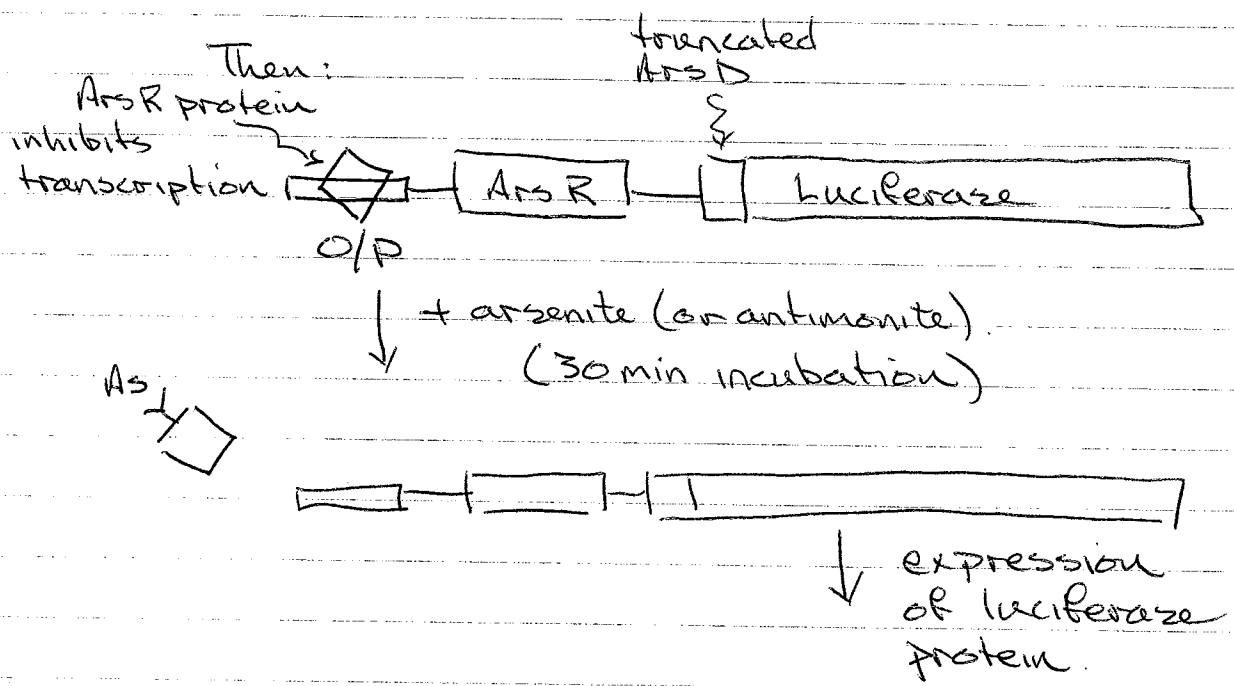 Then:
ArsR protein
inhibits
transcription
truncated
ArsD
ArsR
Luciferase
O/P
+ arsenite (or antimonite).
(30 min incubation)
As
expression
of luciferase
protein.